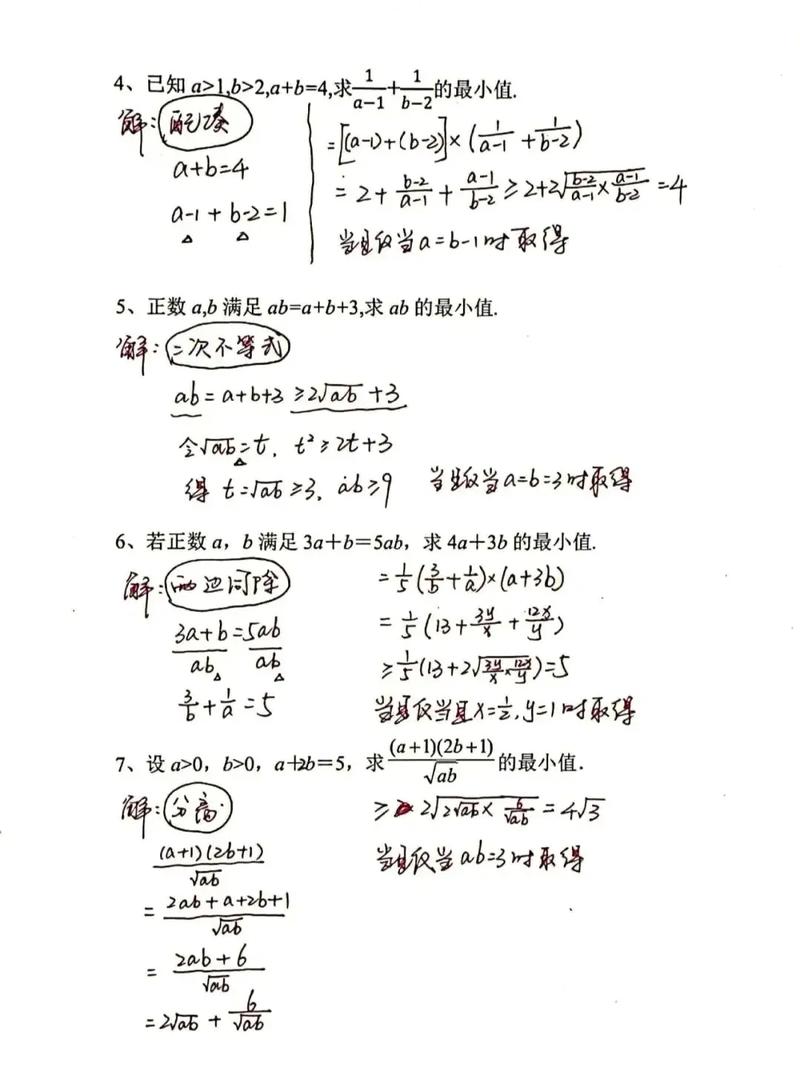 4、已知 a>1,b>2,a+b=4,求 1/(a−1) + 1/(b−2) 的最小值.
解: 配凑
a+b=4
a-1 + b-2=1
=[(a-1)+(b-2)]×(1/(a-1) + 1/(b-2))
= 2+ (b-2)/(a-1) + (a-1)/(b-2) ≥ 2+2√((b-2)/(a-1) × (a-1)/(b-2)) =4
当且仅当 a=b-1时取得
5、正数 a,b 满足 ab=a+b+3,求 ab 的最小值.
解: 二次不等式
ab = a+b+3 ≥2√ab +3
令√ab=t, t²≥2t+3
得 t=√ab≥3, ab≥9 当且仅当a=b=3时取得
6、若正数 a，b 满足 3a+b=5ab，求 4a+3b 的最小值.
解: 两边同除
(3a+b)/ab = 5ab/ab
3/b + 1/a = 5
= 1/5 (3/b + 1/a)×(a+3b)
= 1/5 (13+ 3y/x + 12x/y)
≥ 1/5 (13+2√(3y/x × 12x/y))=5
当且仅当且x=1/2, y=1时取得
7、设 a>0，b>0，a+2b=5，求 (a+1)(2b+1)/√ab 的最小值.
解: 分离
(a+1)(2b+1)/√ab
= (2ab+a+2b+1)/√ab
= (2ab+6)/√ab
= 2√ab + 6/√ab
≥ 2√(2√ab × 6/√ab) = 4√3
当且仅当 ab=3时取得